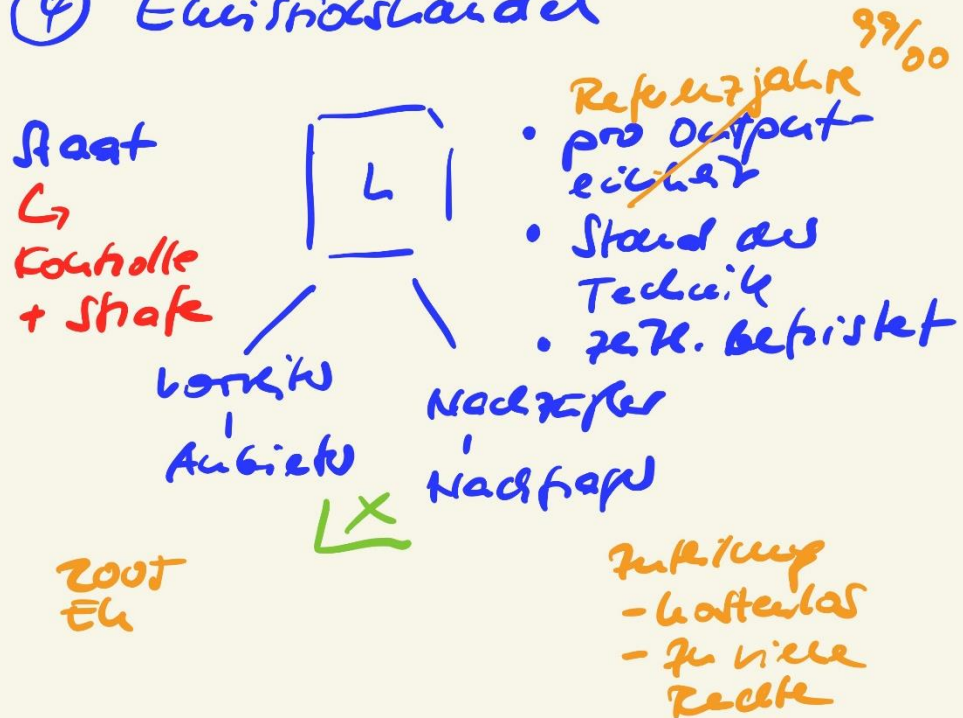 ④ Emissionshandel
99/00
Staat
↳
Kontrolle
+ Strafe
L
Referenzjahre
• pro Output-
einheit
• Stand der
Technik
• zeitl. befristet
Vorreiter
Anbieter
Nachzügler
Nachfrager
2005
EH
Zuteilung
- kostenlos
- zu viele
Rechte